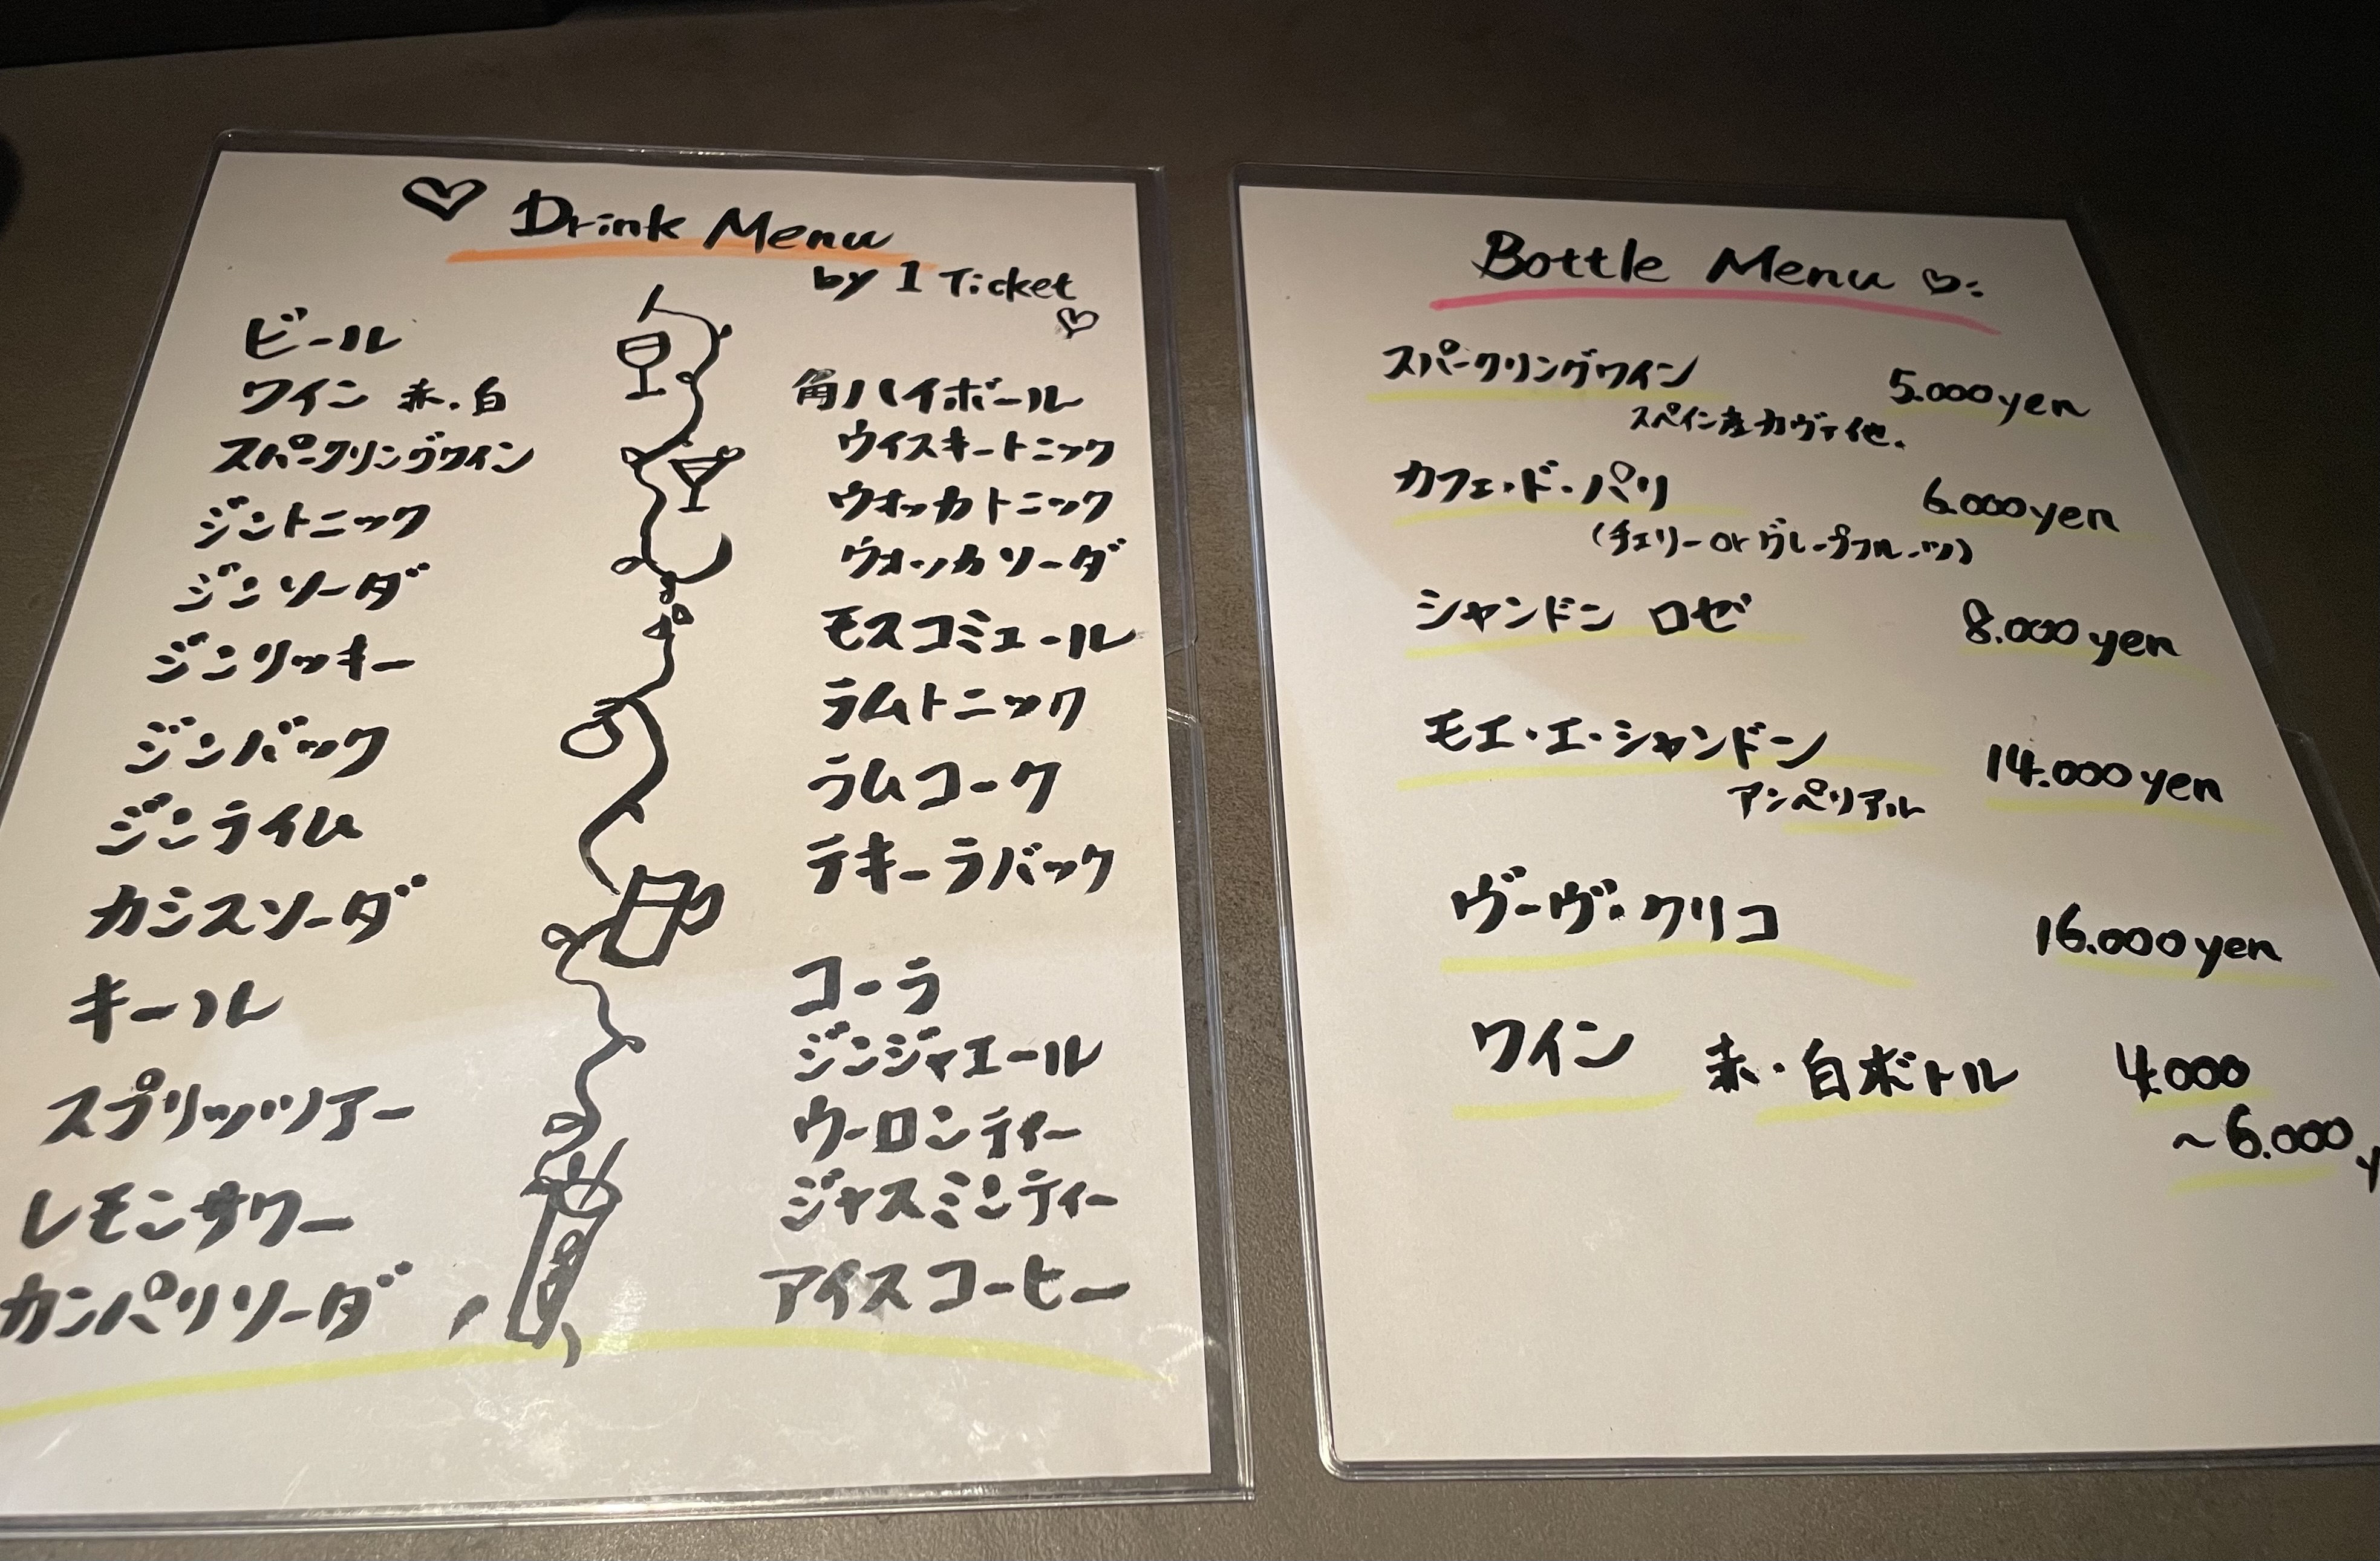 Drink Menu
by 1 Ticket
ビール
ワイン 赤・白
スパークリングワイン
ジントニック
ジンソーダ
ジンリッキー
ジンバック
ジンライム
カシスソーダ
キール
スプリッツァー
レモンサワー
カンパリソーダ
角ハイボール
ウイスキートニック
ウォッカトニック
ウォッカソーダ
モスコミュール
ラムトニック
ラムコーク
テキーラバック
コーラ
ジンジャエール
ウーロンティー
ジャスミンティー
アイスコーヒー
Bottle Menu
スパークリングワイン 5.000yen
スペイン産カヴァ他.
カフェ・ド・パリ 6.000yen
(チェリーorグレープフルーツ)
シャンドン ロゼ 8.000yen
モエ・エ・シャンドン 14.000yen
アンペリアル
ヴーヴ・クリコ 16.000yen
ワイン 赤・白ボトル 4.000
~6.000y